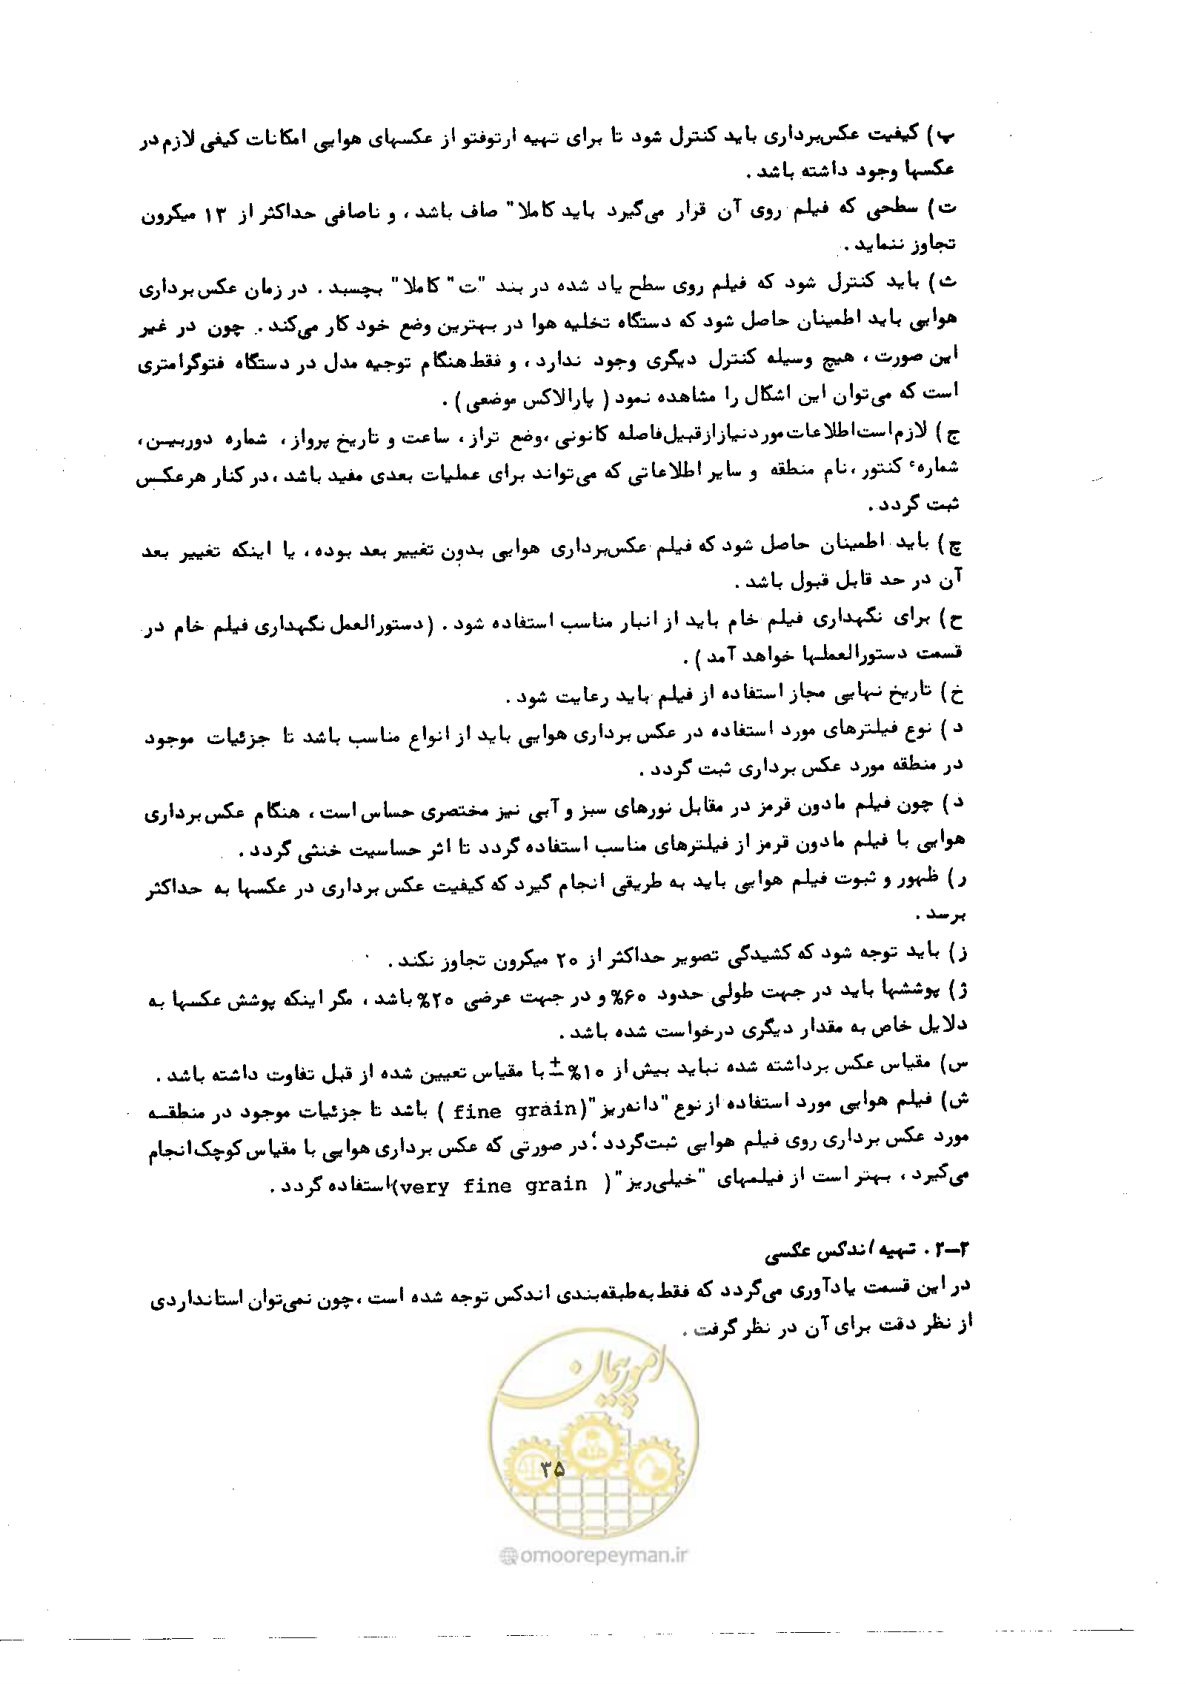 پ) کیفیت عکس‌برداری باید کنترل شود تا برای تهیه ارتوفتو از عکسهای هوایی امکانات کیفی لازم در
عکسها وجود داشته باشد .
ت) سطحی که فیلم روی آن قرار می‌گیرد باید کاملا" صاف باشد ، و ناصافی حداکثر از ۱۳ میکرون
تجاوز ننماید .
ث) باید کنترل شود که فیلم روی سطح یاد شده در بند "ت" کاملا" بچسبد . در زمان عکس‌برداری
هوایی باید اطمینان حاصل شود که دستگاه تخلیه هوا در بهترین وضع خود کار می‌کند . چون در غیر
این صورت ، هیچ وسیله کنترل دیگری وجود ندارد ، و فقط هنگام توجیه مدل در دستگاه فتوگرامتری
است که می‌توان این اشکال را مشاهده نمود ( پارالاکس موضعی ) .
ج) لازم است اطلاعات مورد نیاز از قبیل فاصله کانونی ،وضع تراز ، ساعت و تاریخ پرواز ، شماره دوربین ،
شمارهٔ کنتور ،نام منطقه و سایر اطلاعاتی که می‌تواند برای عملیات بعدی مفید باشد ،در کنار هر عکس
ثبت گردد .
چ) باید اطمینان حاصل شود که فیلم عکس‌برداری هوایی بدون تغییر بعد بوده ، یا اینکه تغییر بعد
آن در حد قابل قبول باشد .
ح) برای نگهداری فیلم خام باید از انبار مناسب استفاده شود . (دستورالعمل نگهداری فیلم خام در
قسمت دستورالعملها خواهد آمد ) .
خ) تاریخ نهایی مجاز استفاده از فیلم باید رعایت شود .
د) نوع فیلترهای مورد استفاده در عکس برداری هوایی باید از انواع مناسب باشد تا جزئیات موجود
در منطقه مورد عکس برداری ثبت گردد .
ذ) چون فیلم مادون قرمز در مقابل نورهای سبز و آبی نیز مختصری حساس است ، هنگام عکس‌برداری
هوایی با فیلم مادون قرمز از فیلترهای مناسب استفاده گردد تا اثر حساسیت خنثی گردد .
ر) ظهور و ثبوت فیلم هوایی باید به طریقی انجام گیرد که کیفیت عکس برداری در عکسها به حداکثر
برسد .
ز) باید توجه شود که کشیدگی تصویر حداکثر از ۲۰ میکرون تجاوز نکند .
ژ) پوششها باید در جهت طولی حدود ۶۰% و در جهت عرضی ۲۰% باشد ، مگر اینکه پوشش عکسها به
دلایل خاص به مقدار دیگری درخواست شده باشد .
س) مقیاس عکس برداشته شده نباید بیش از ۱۰%± با مقیاس تعیین شده از قبل تفاوت داشته باشد .
ش) فیلم هوایی مورد استفاده از نوع "دانه‌ریز"(fine grain ) باشد تا جزئیات موجود در منطقه
مورد عکس برداری روی فیلم هوایی ثبت گردد ؛ در صورتی که عکس برداری هوایی با مقیاس کوچک انجام
می‌گیرد ، بهتر است از فیلمهای "خیلی‌ریز"( very fine grain) استفاده گردد .
۲-۲ . تهیه اندکس عکسی
در این قسمت یادآوری می‌گردد که فقط به طبقه‌بندی اندکس توجه شده است ،چون نمی‌توان استانداردی
از نظر دقت برای آن در نظر گرفت .
امور پیمان
۳۵
@omoorepeyman.ir